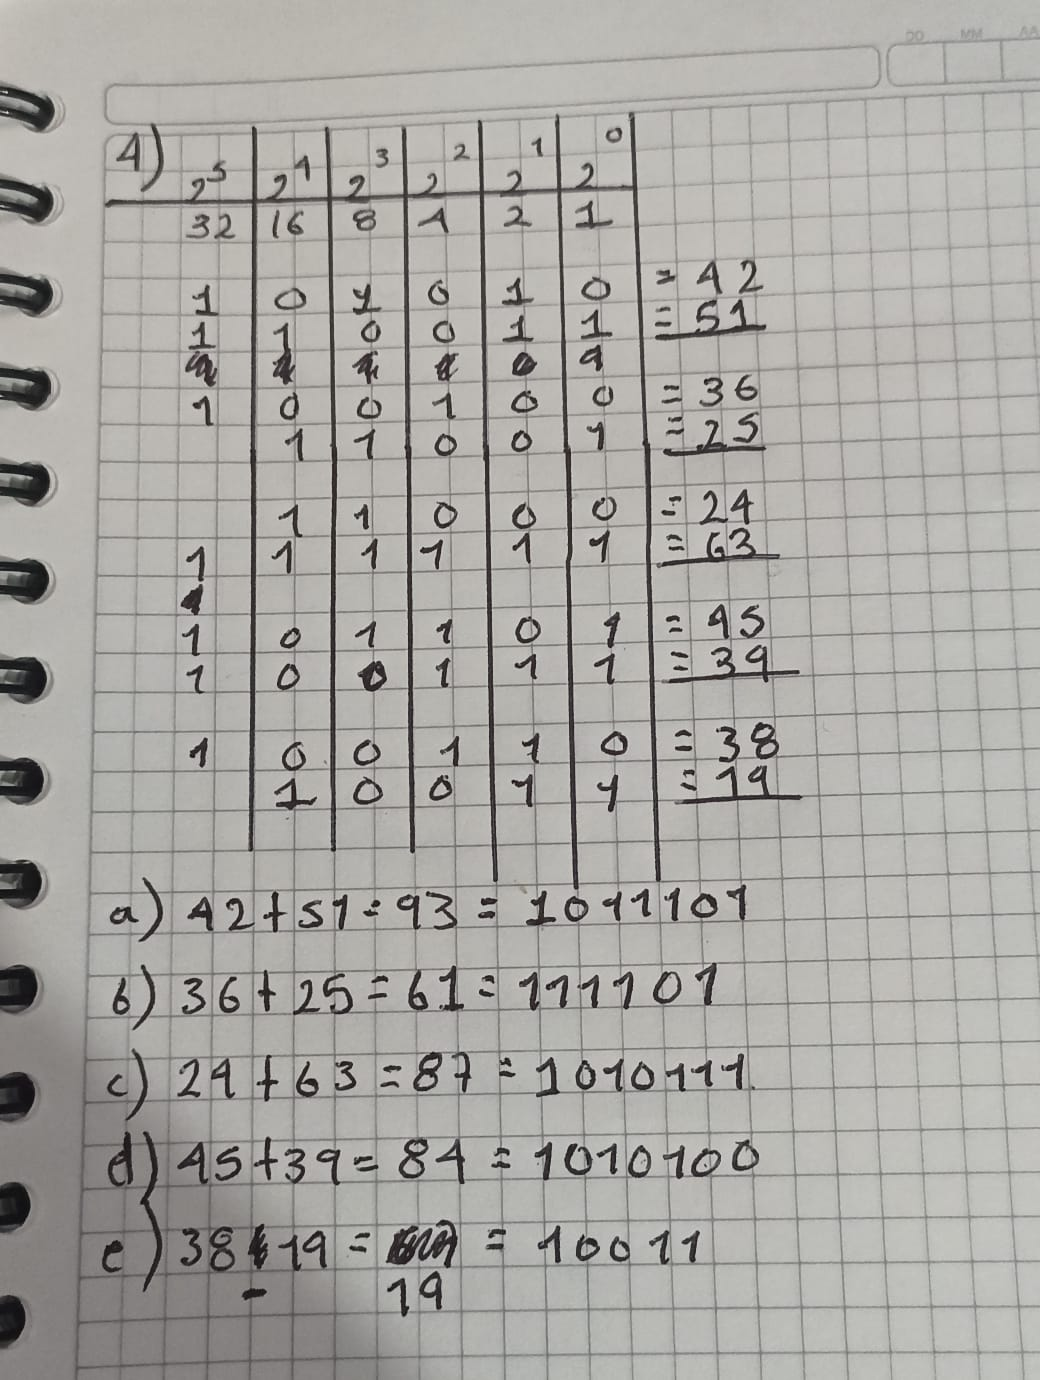 DD MM AA
4) 2^5 2^4 2^3 2^2 2^1 2^0
32 16 8 4 2 1
1 0 1 0 1 0 = 42
1 1 0 0 1 1 = 51
1 0 0 1 0 0 = 36
1 1 0 0 1 = 25
1 1 0 0 0 = 24
1 1 1 1 1 1 = 63
1 0 1 1 0 1 = 45
1 0 0 1 1 1 = 39
1 0 0 1 1 0 = 38
1 0 0 1 1 = 19
a) 42+51=93=1011101
b) 36+25=61=111101
c) 24+63=87=1010111.
d) 45+39=84=1010100
e) 38 - 19 = 19 = 10011